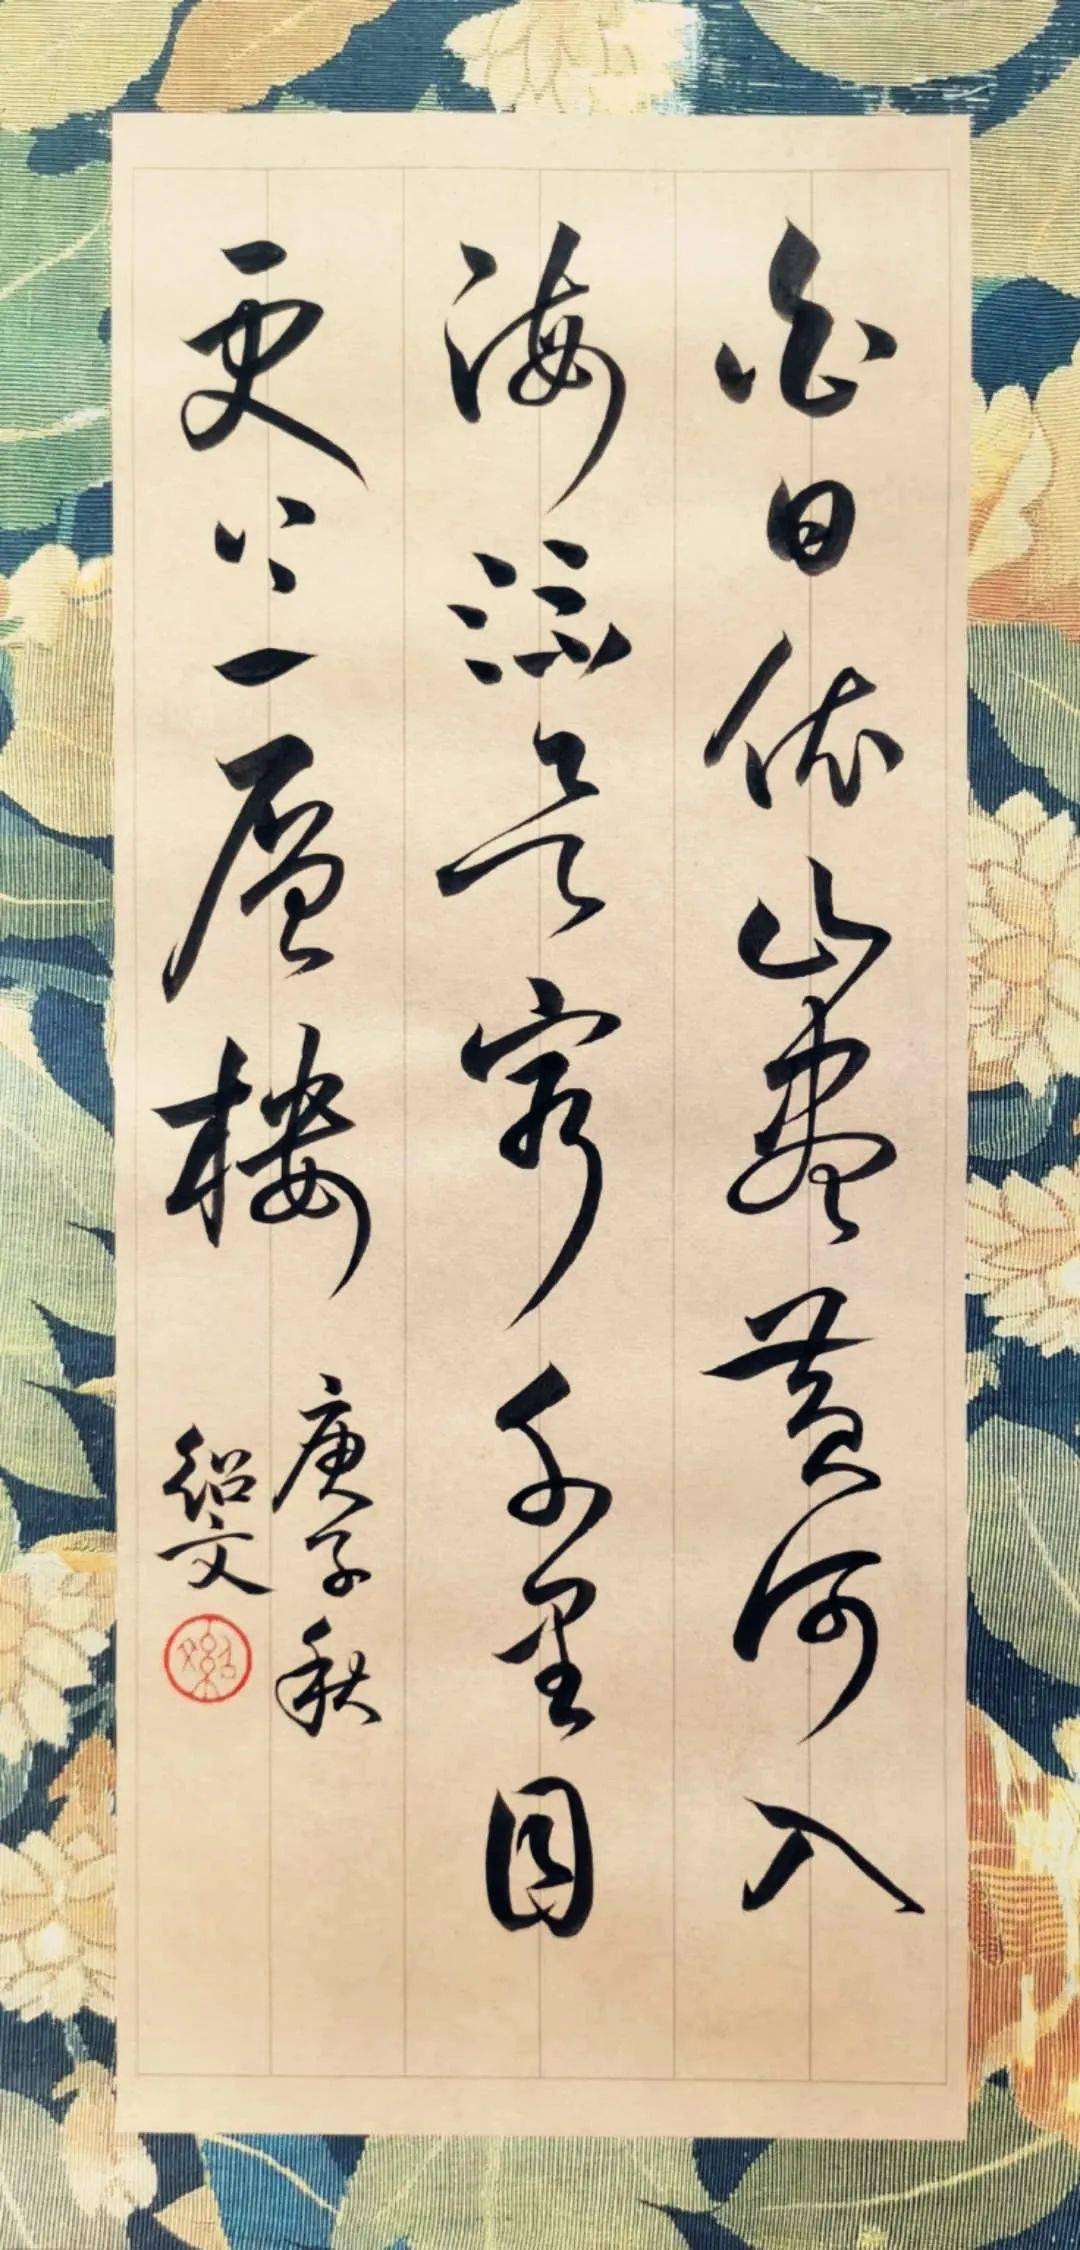 白日依山盡黄河入
海流欲窮千里目
更上一層樓
庚子秋
紹文